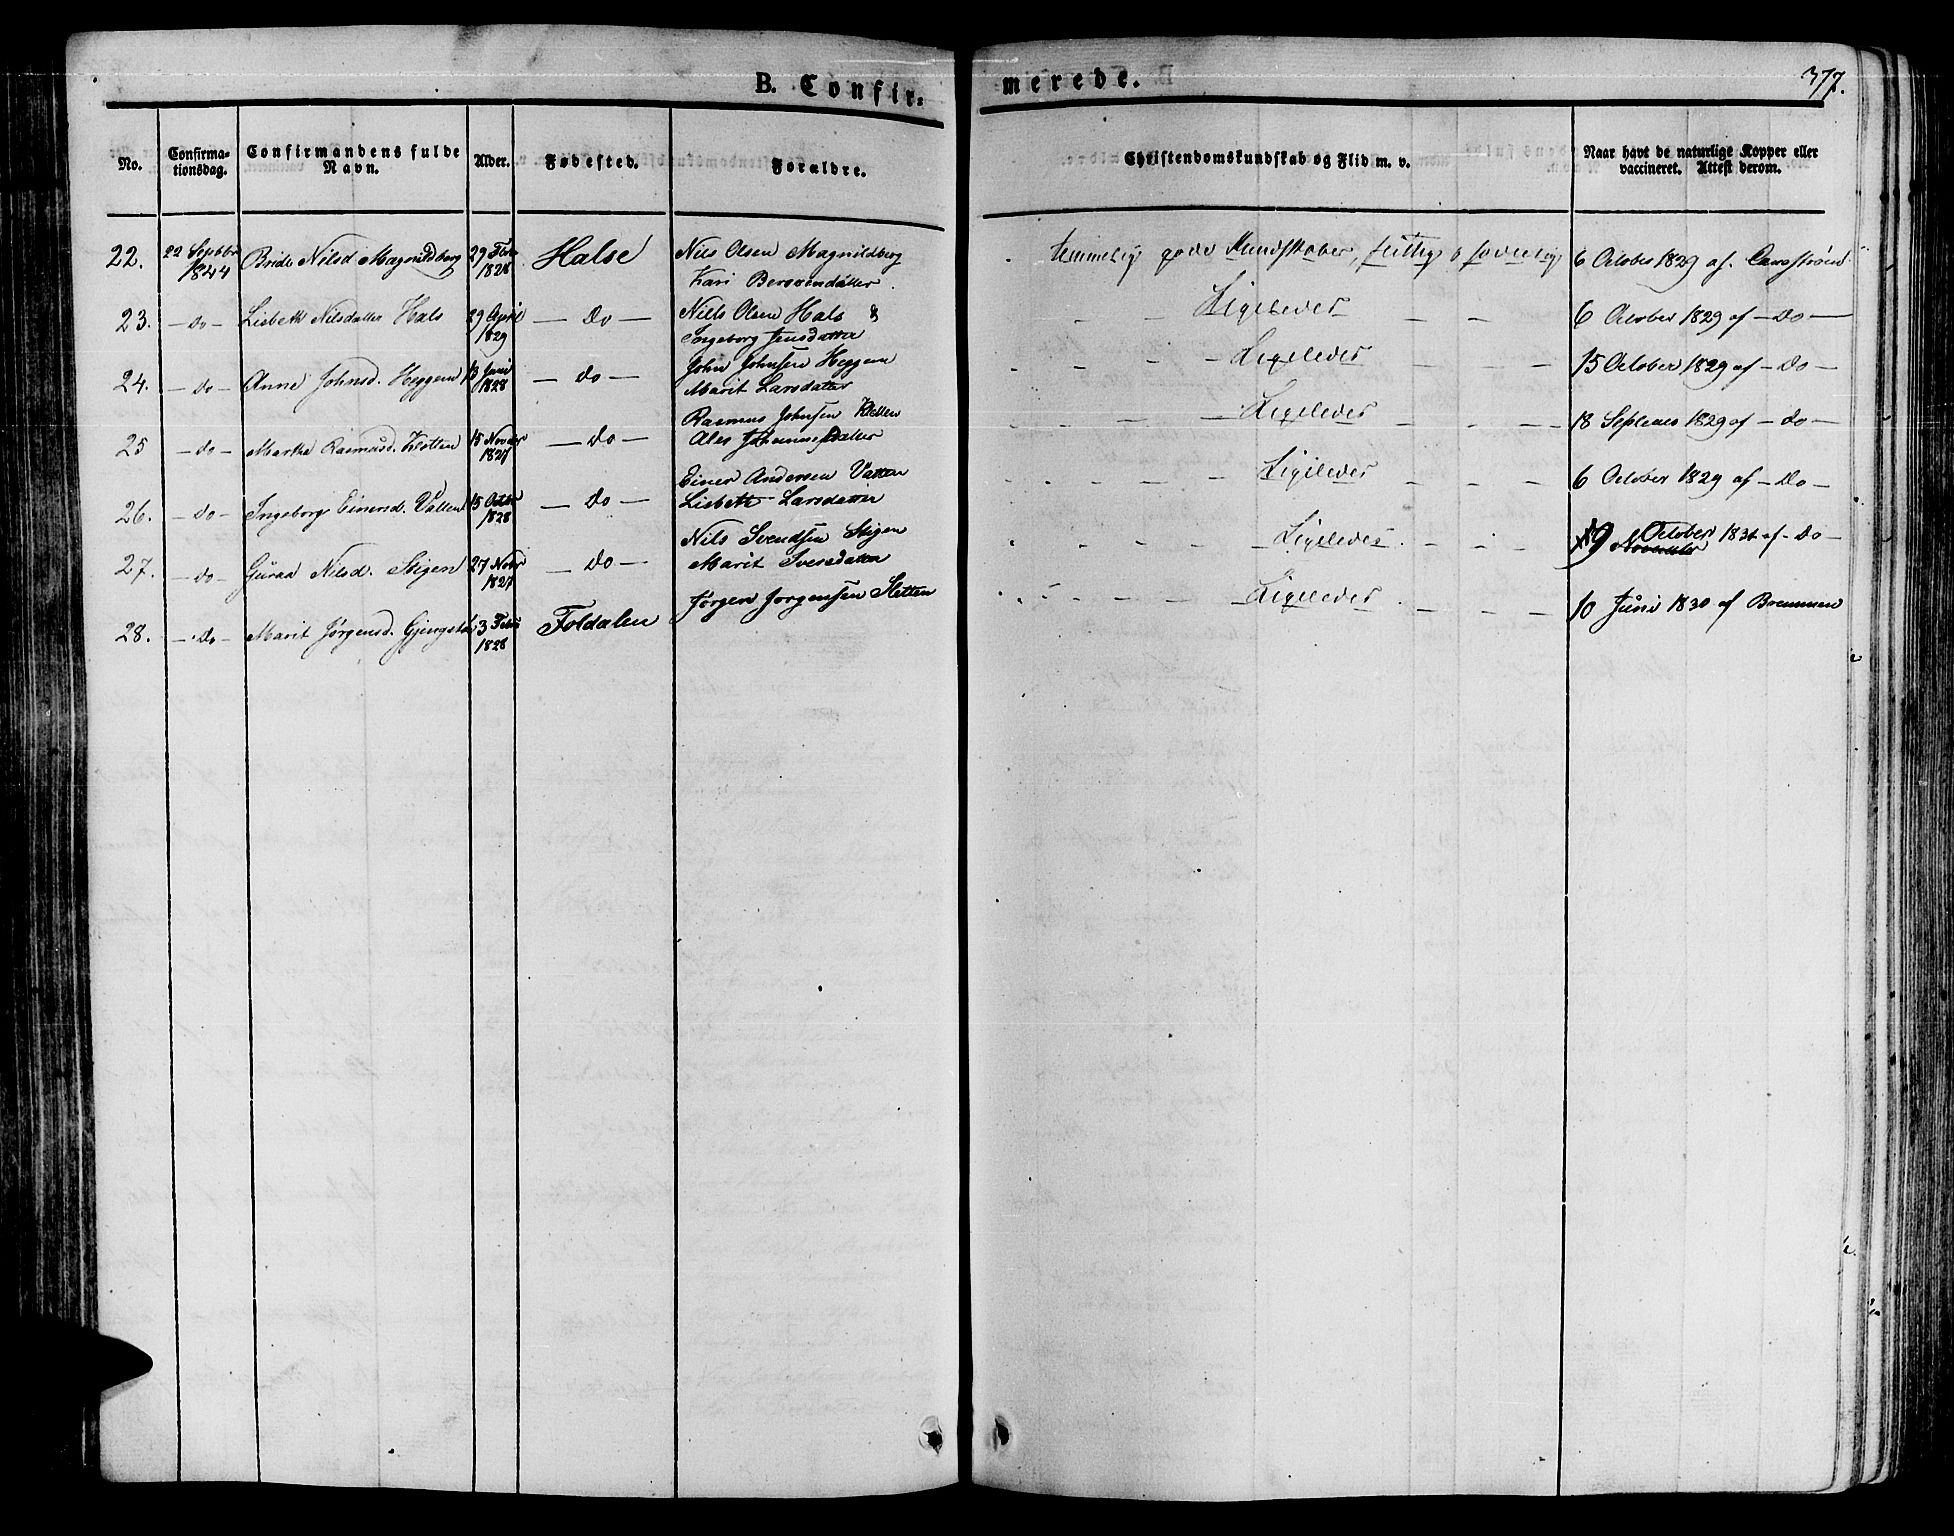 B. Confir=
merede.
377.
No.
Confirma-
tionsdag.
Confirmandens fulde
Navn.
Alder.
Fødested.
Forældre.
Christendomskundskab og Flid m. v.
Naar havt de naturlige Kopper eller
vaccineret. Attest derom.
22. 22 Septbr Bride Nilsd Magnildberg 29 Febr Halse Nils Olsen Magnildberg temmelig gode Kundskaber, flittig & sædelig 6 October 1829 af
1844 1828 Kari
23. - Do - Lisbeth Nilsdatter Hals 29 April - Do - Niels Olsen Hals & - - Ligeledes - - 6 October 1829 af - Do -
1829 Ingeborg Jensdatter
24. - Do - Anne Johnsd. Heggem 13 Juni - Do - John Johnsen Heggem - - Ligeledes - - - 15 October 1829 af - Do -
1828 Marit Larsdatter
25 - Do - Martha Rasmusd. Kletten 15 Novbr - Do - Rasmus Johnsen Kletten - - - - Ligeledes 18 1829 af - Do -
1827 Ales
26. - Do - Ingeborg Einersd. Vatten 15 Octbr - Do - Einer Andersen Vatten - - - - Ligeledes - - - 6 October 1829 af - Do -
1828 Lisbeth Larsdatter
27. - Do - Guraa Nilsd. Stigen 27 Novbr - Do - Nils Svendsen Stigen - - - Ligeledes - - - 19 October af - Do -
1827 Marit
28. - Do - Marit Jørgensd. 3 Febr Foldalen Jørgen Jørgensen - - - - Ligeledes - - - 10 Juni 1830 af Bremmen
1828